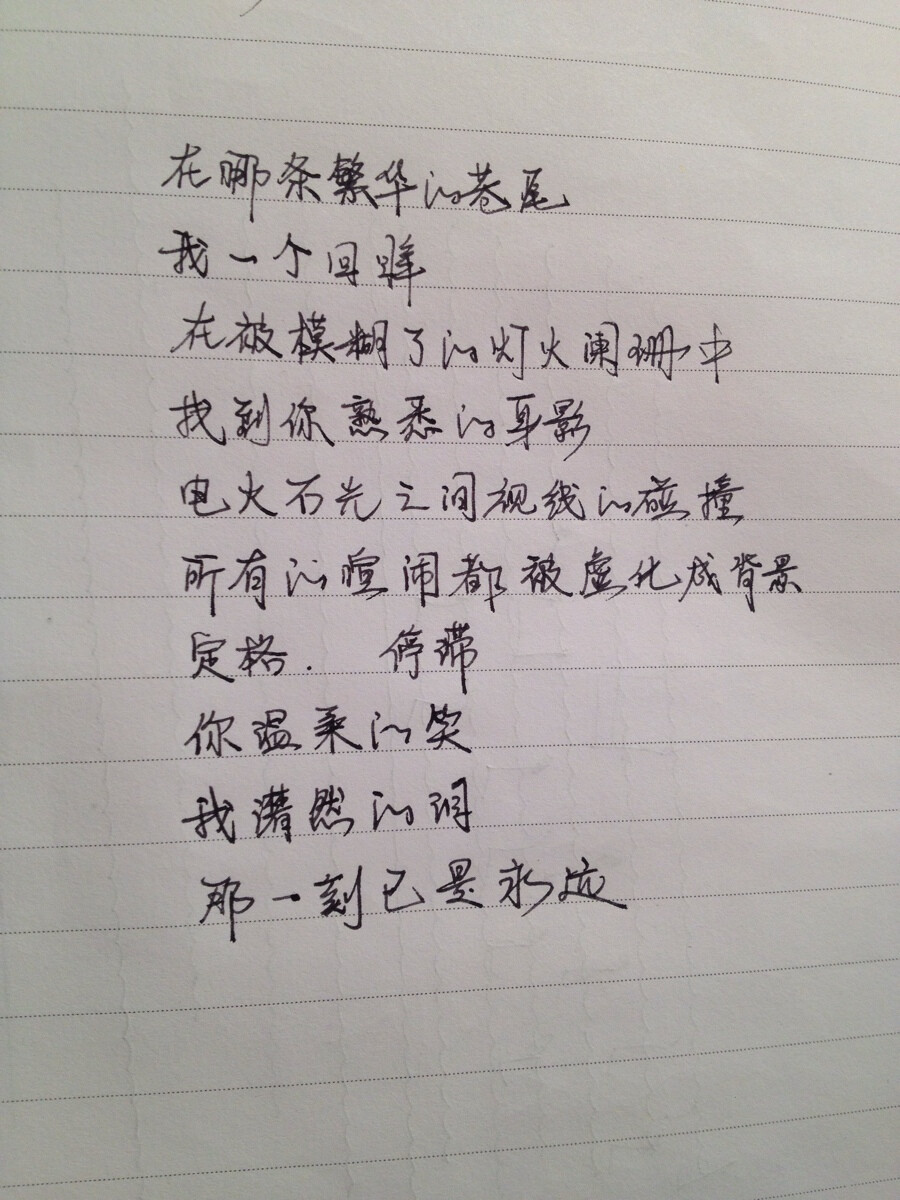 在哪条繁华的巷尾
我一个回眸
在被模糊了的灯火阑珊中
找到你熟悉的身影
电火石光之间视线的碰撞
所有的喧闹都被虚化成背景
定格. 停滞
你温柔的笑
我潸然的泪
那一刻已是永远